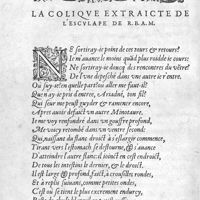 LA COLIQVE EXTRAICTE DE
L'ESCVLAPE DE R.B.A.M.
NE sortiray-ie point de ces tours & retours?
Ie m'auance le moins quãd plus roidde ie cours:
Ne sortiray-ie doncq des rencontres du vētre?
De l'vne depesché dans vne autre ie r'entre.
Ou suy-ie? en quelle part
Qui m'ay ne pris d'entree, Ariadné, ton fil?
Qui seur me peust guyder & ramener encore,
Apres auoir deffait vn autre Minotaure.
Ie me voy renfondrer dans vn gouffre profond,
Me voicy remonté dans vn ventre second:
Qui paissant du flanc droict à s'eslargir commence,
Tirant vers l'estomach se destourne, & s'auance
D'atteindre l'autre flanc: il
De tous les intestins le dernier, & le
Il est large & profond,
Et à replis suiuans, comme petites ondes,
C'est où se tient le plus excrement endurcy,